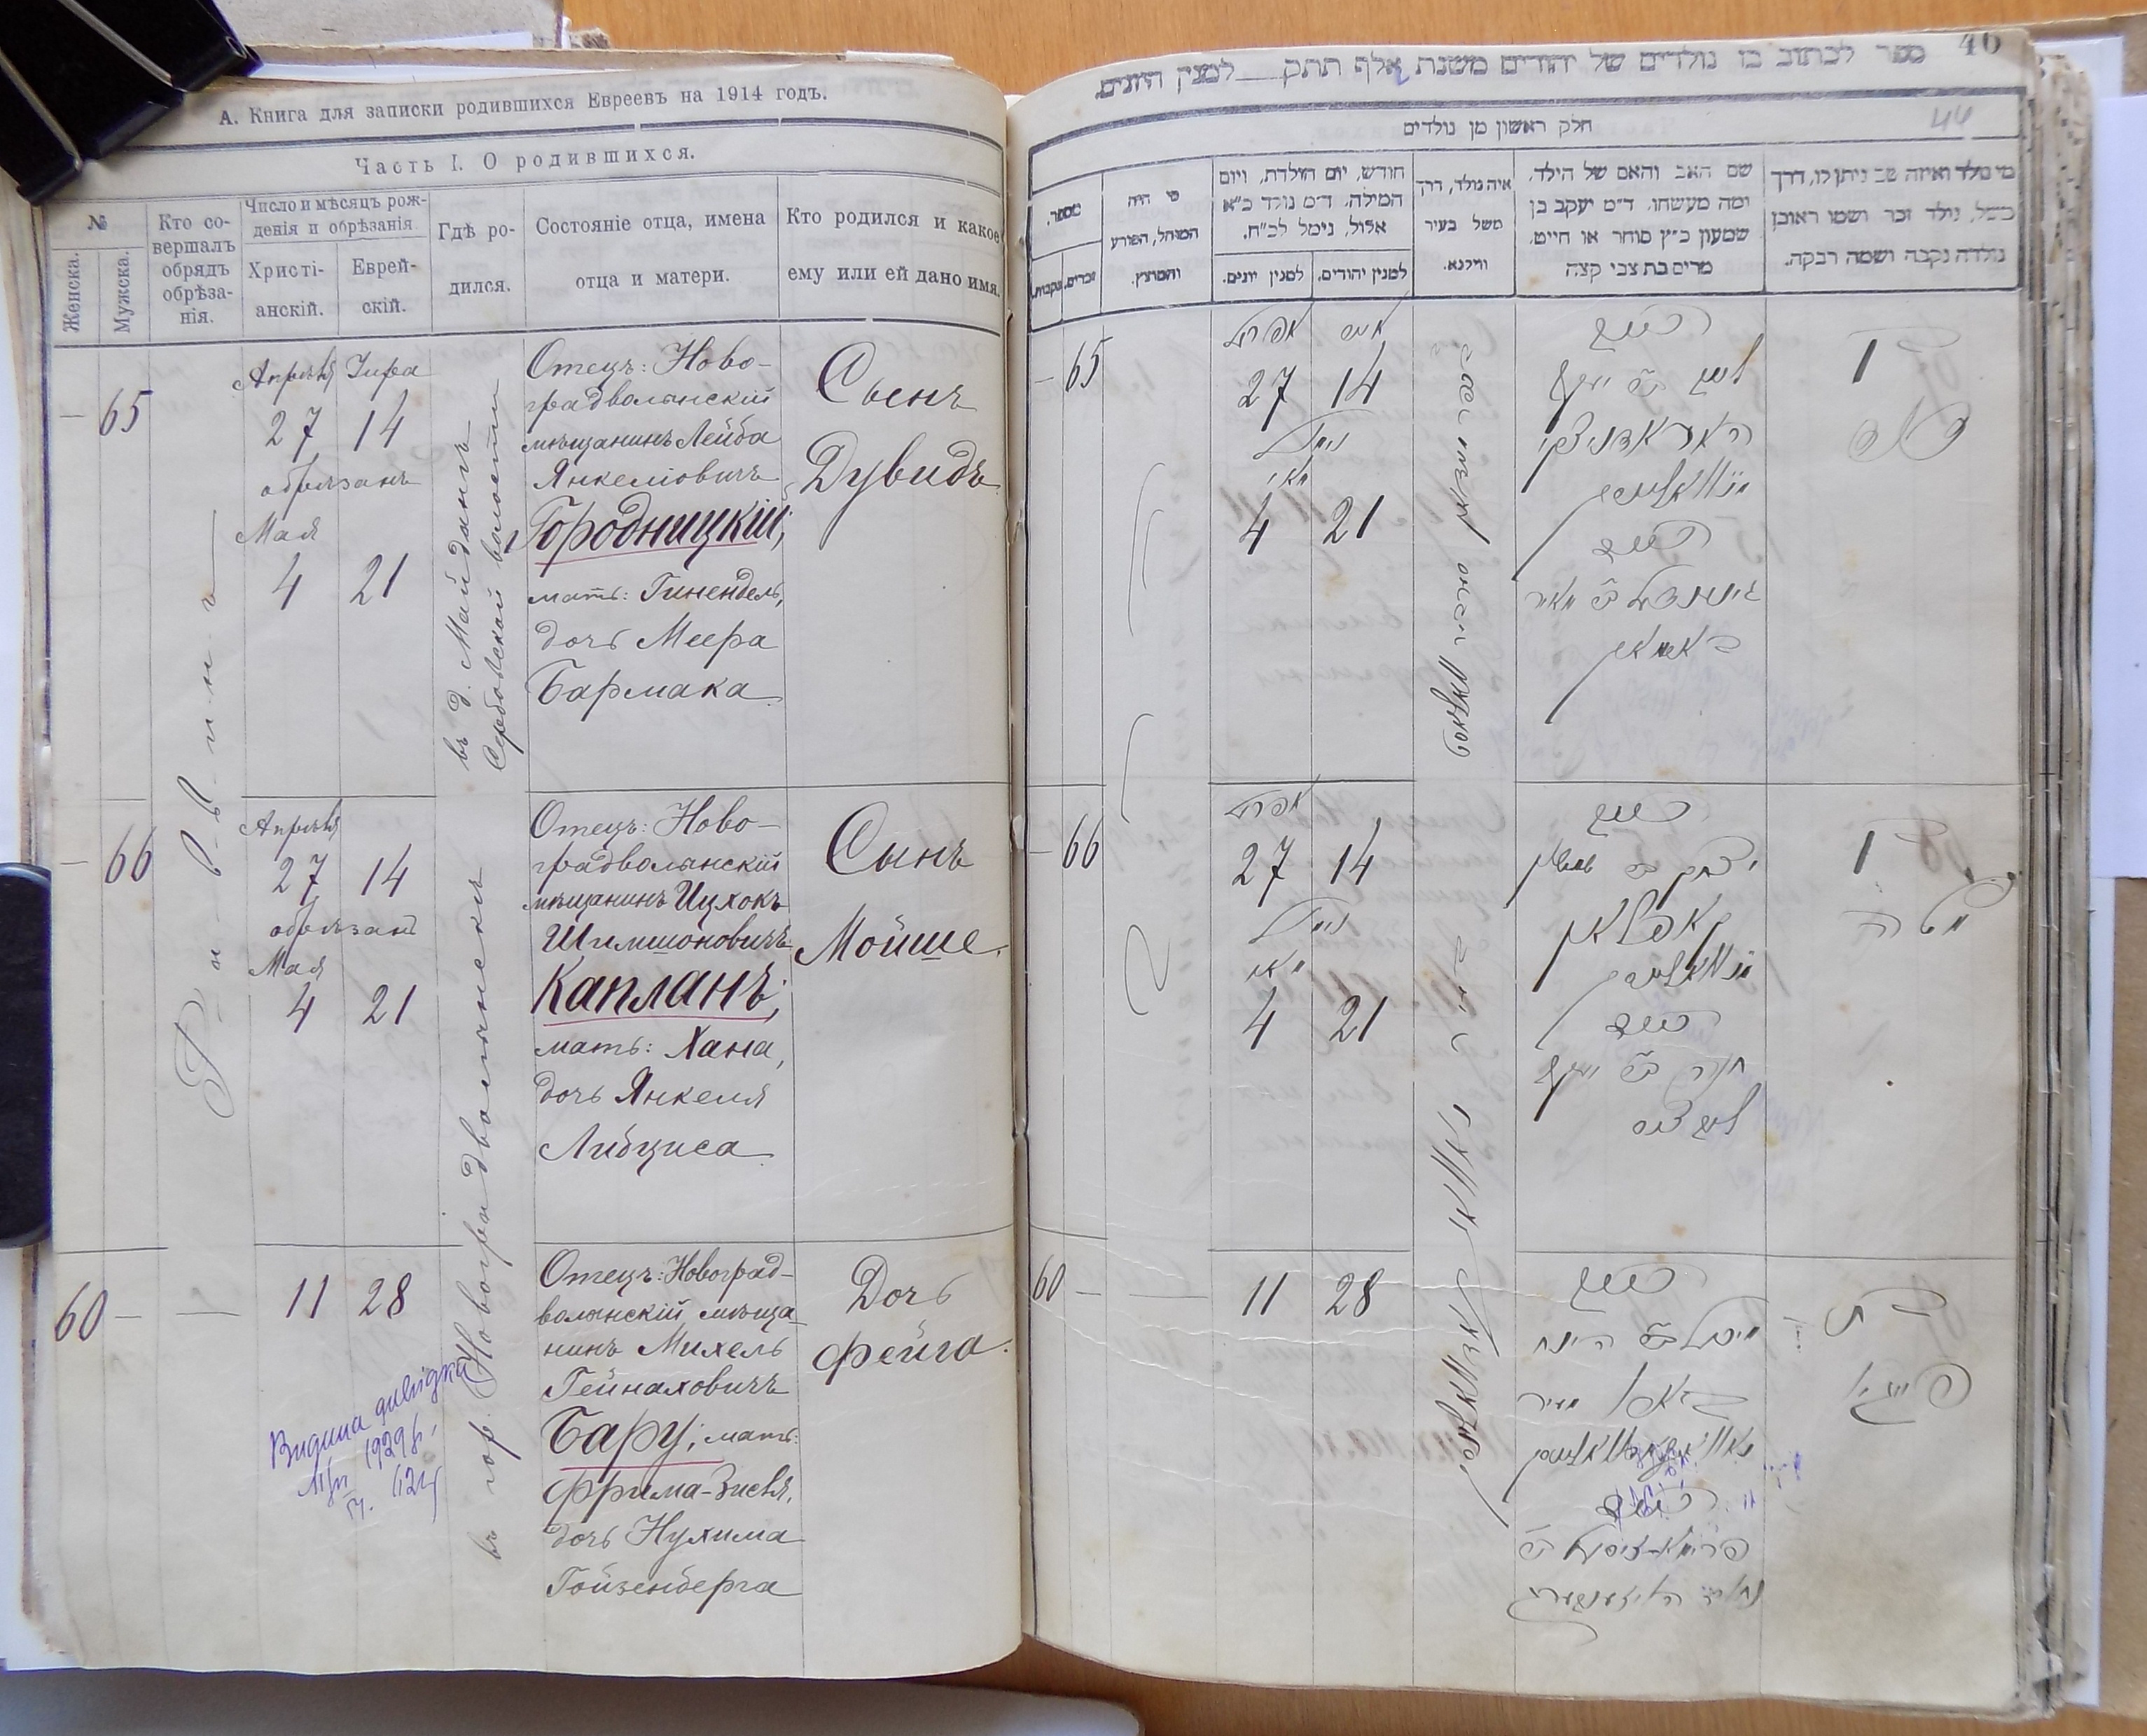 А. Книга для записки родившихся Евреевъ на 1914 годъ.
Часть I. О родившихся.
№
Женска.
Мужска.
Кто со-
вершалъ
обрядъ
обрѣза-
нія.
Число и мѣсяцъ рож-
денія и обрѣзанія.
Христі-
анскій.
Еврей-
скій.
Гдѣ ро-
дился.
Состояніе отца, имена
отца и матери.
Кто родился и какое
ему или ей дано имя.
— 65
Раввинъ
Апрѣля Іира
27 14
обрѣзанъ
Мая
4 21
въ д. Майданъ
Сербовской волости
Отецъ: Ново-
градволынскій
мѣщанинъ Лейба
Янкеліовичъ
Городницкій;
мать: Гинендель,
дочь Меера
Бармака
Сынъ
Дувидъ
— 66
Апрѣля
27 14
обрѣзанъ
Мая
4 21
въ гор. Новоградволынскѣ
Отецъ: Ново-
градволынскій
мѣщанинъ Ицхокъ
Шимшоновичъ
Капланъ;
мать: Хана,
дочь Янкеля
Либциса
Сынъ
Мойше.
60 — —
11 28
Отецъ: Новоград-
волынскій мѣща-
нинъ Михель
Гейнаховичъ
Бару; мать:
Фрима-Зисля,
дочь Нухима
Гойзенберга
Дочь
Фейга.
Видана довідка
1929 р.
40
ספר לכתוב בו נולדים של יהודים משנת אלף תתק למנין היונים.
חלק ראשון מן נולדים
מספר.
זכרים.
נקבות.
מי היה
המוהל, הפורע
והמוצץ.
חודש, יום הולדת, ויום
המילה. ד״מ נולד כ״א
אלול, נימל לכ״ח.
למנין יונים.
למנין יהודים.
איה נולד, דרך
משל בעיר
ווילנא.
שם האב והאם של הילד,
ומה מעשהו. ד״מ יעקב בן
שמעון כ״ץ סוחר או חייט,
מרים בת צבי קצה
מי נולד ואיזה שם ניתן לו, דרך
משל, נולד זכר ושמו ראובן
נולדה נקבה ושמה רבקה.
— 65
אפריל אייר
27 14
נימל
מאי
4 21
האב
לייב ב״ר יעקב
האראדניצקי
האם
גינענדל ב״ר מאיר
בארמאק
בן
דוד
— 66
אפריל
27 14
נימל
מאי
4 21
האב
יצחק ב״ר שמשון
קאפלאן
האם
חנה ב״ר יעקב
בן
משה
60 — —
11 28
האב
מיכל ב״ר הינח
האם
בת
פייגא